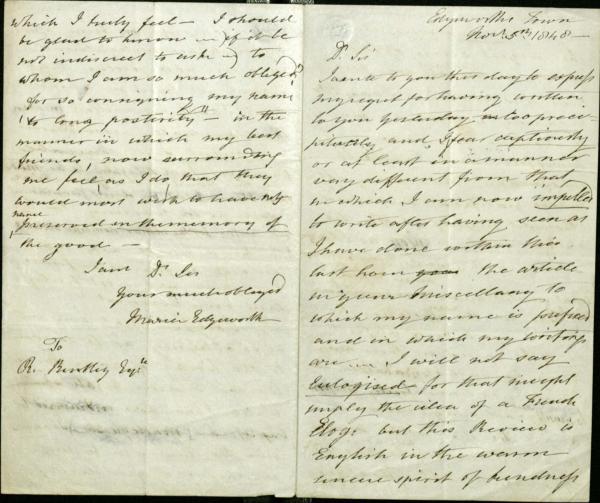 Edgeworths Town
Nov.r 5th 1848 —
Dr Sir
I write to you this day to express
my regret for having written
to you yesterday so too preci-
pitately and I fear captiously
or at least in a manner
very different from that
in which I am now impelled
to write after having seen as
I have done within this
last hour your the article
in your Miscellany to
which my name is prefixed
and in which my writings
are — I will not say
Eulogised for that might
imply the idea of a French
Eloge but this Review is
English in the warm
sincere spirit of kindness
which I truly feel — I should
be glad to know — (if it be
not indiscreet to ask —) to
whom I am so much obliged
for so consigning my name
"to long posterity" — in the
manner in which my best
friends, now surrounding
me feel as I do that they
would most wish to have my
name
preserved in the memory of
the good —
I am Dr Sir
Your much obliged
Maria Edgeworth
To
R. Bentley Esqre